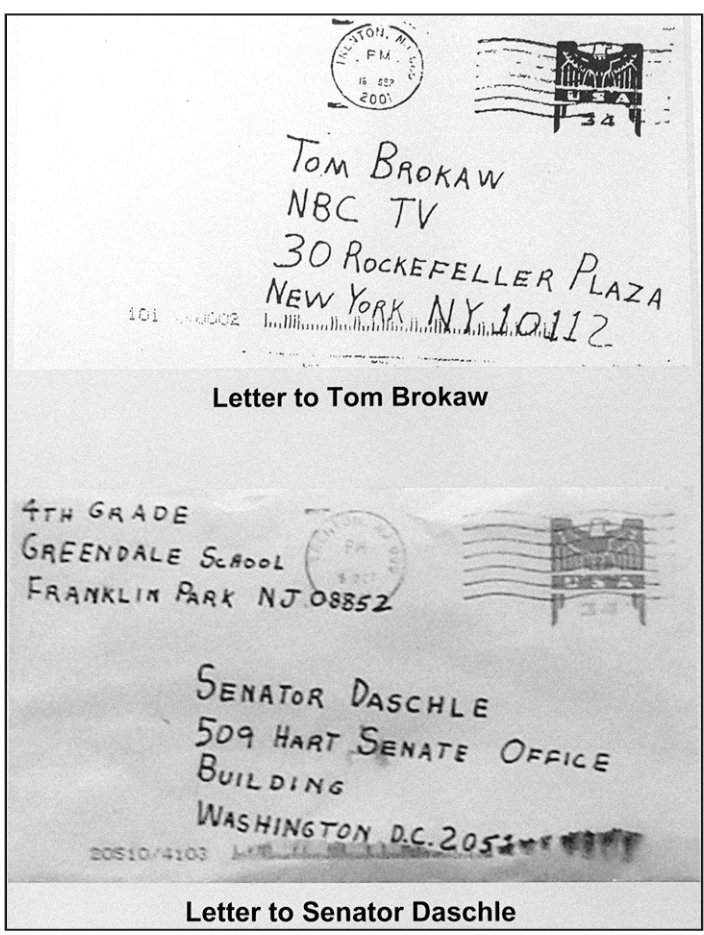 TRENTON, NJ
PM
18 SEP
2001
USA
34
TOM BROKAW
NBC TV
30 ROCKEFELLER PLAZA
NEW YORK NY 10112
101 0002
Letter to Tom Brokaw
4TH GRADE
GREENDALE SCHOOL
FRANKLIN PARK NJ 08852
TRENTON, NJ
PM
OCT
USA
34
SENATOR DASCHLE
509 HART SENATE OFFICE
BUILDING
WASHINGTON D.C. 2051
20510/4103
Letter to Senator Daschle